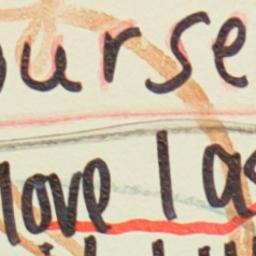 urse
love las